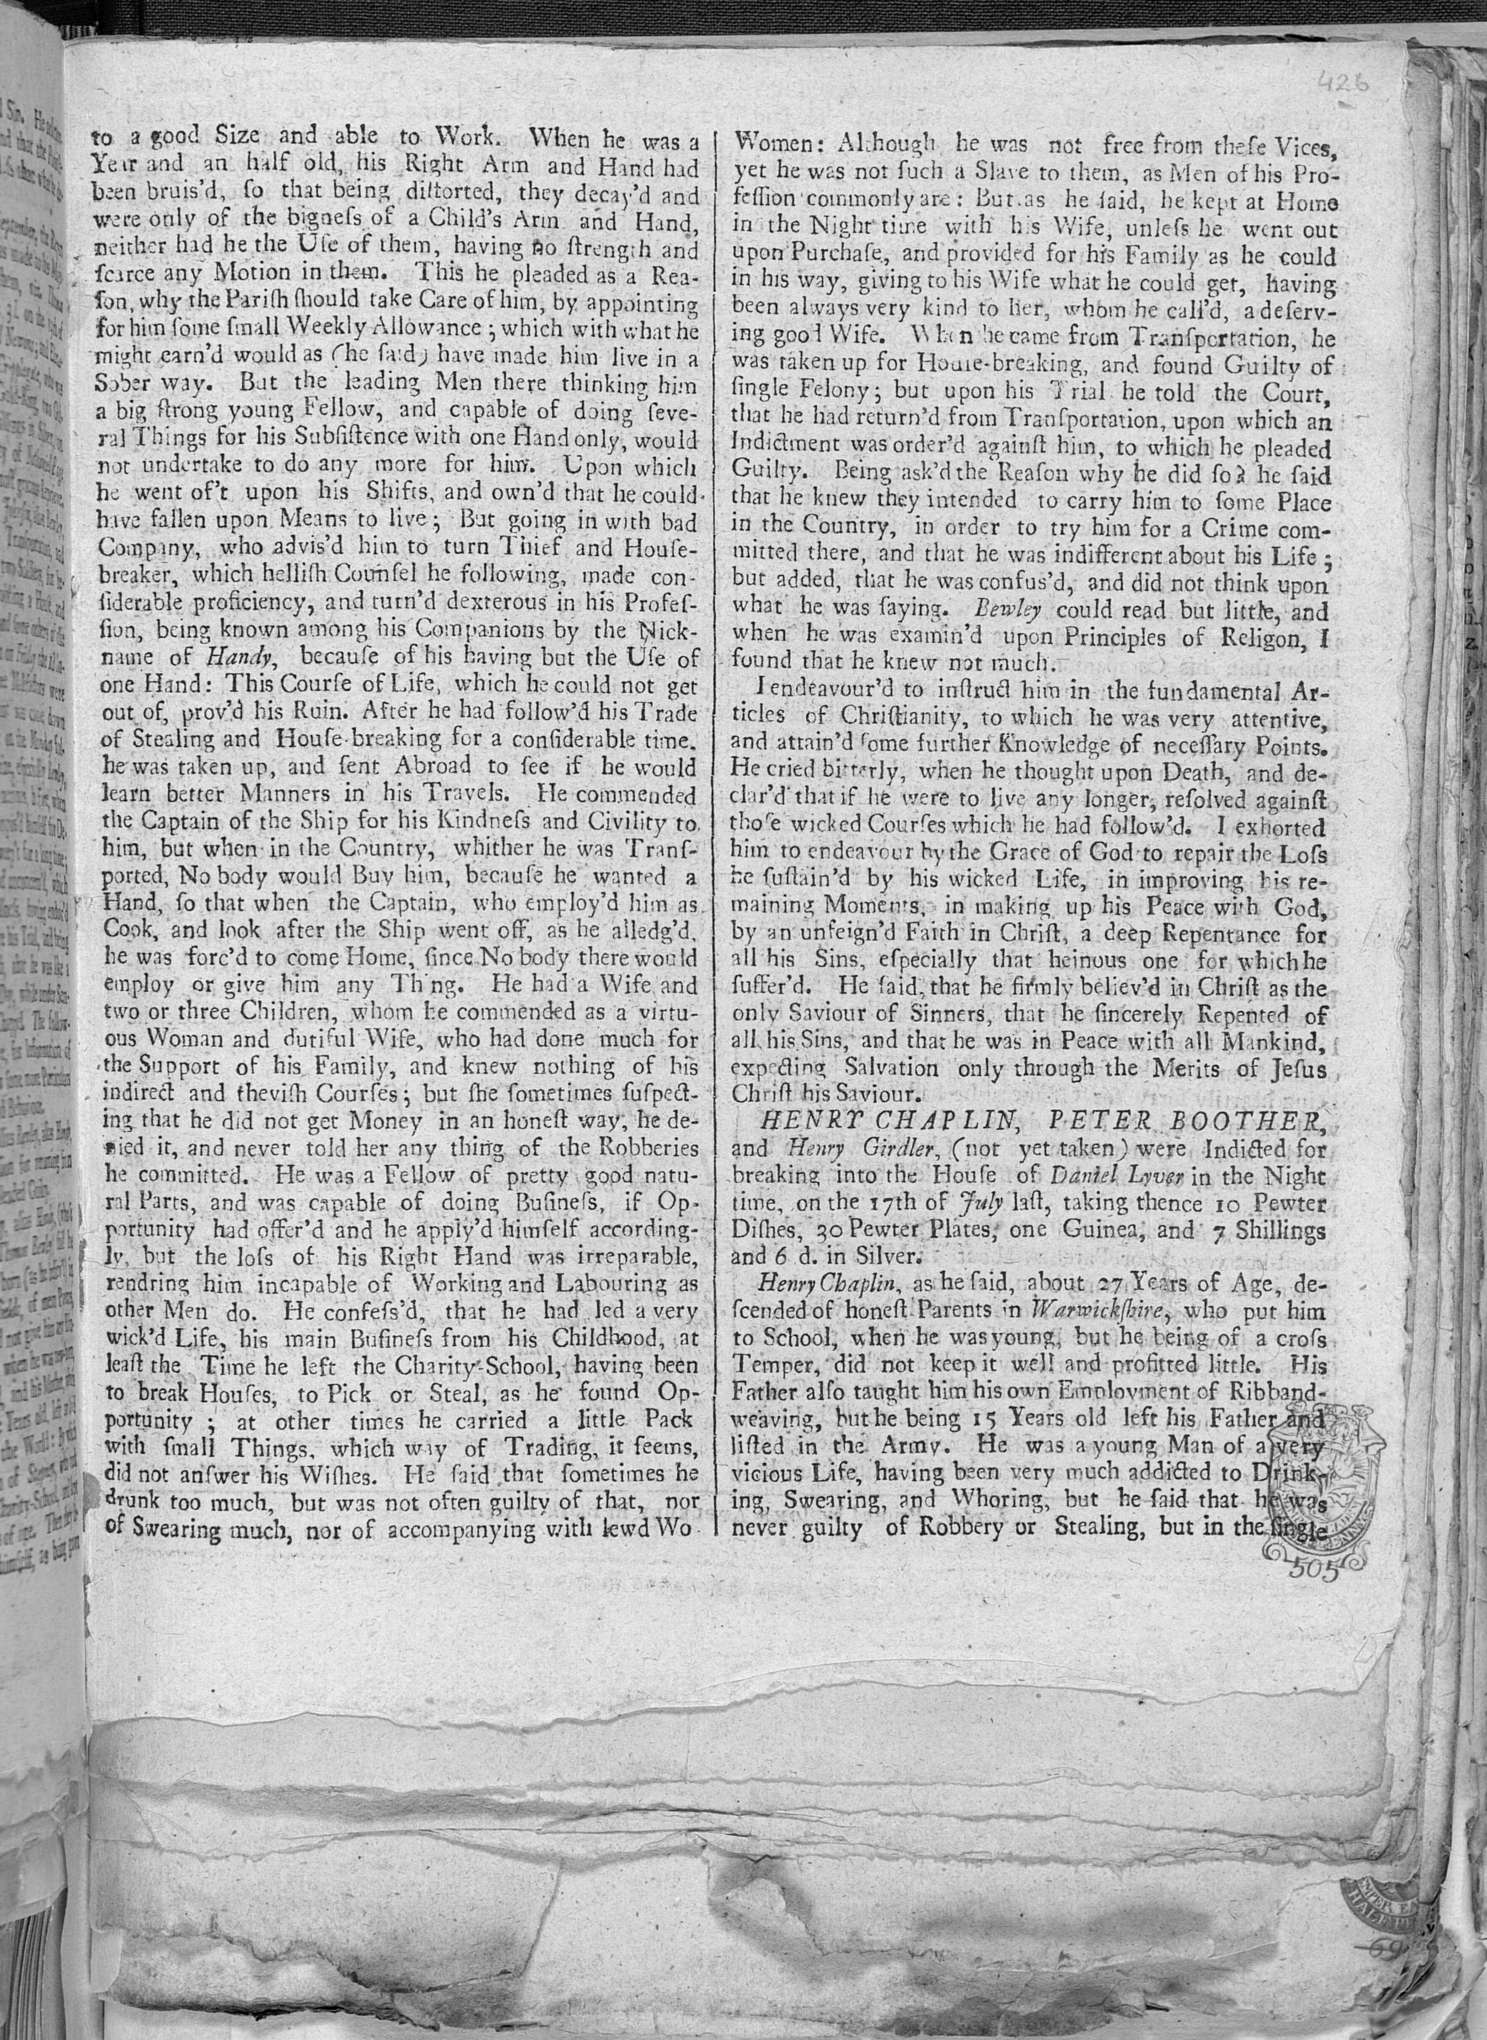 426
to a good Size and able to Work. When he was a
Year and an half old, his Right Arm and Hand had
been bruis'd, ſo that being diſtorted, they decay'd and
were only of the bigneſs of a Child's Arm and Hand,
neither had he the Uſe of them, having no ſtrength and
ſcarce any Motion in them. This he pleaded as a Rea-
ſon, why the Pariſh ſhould take Care of him, by appointing
for him ſome ſmall Weekly Allowance; which with what he
might earn'd would as (he ſaid) have made him live in a
Sober way. But the leading Men there thinking him
a big ſtrong young Fellow, and capable of doing ſeve-
ral Things for his Subſiſtence with one Hand only, would
not undertake to do any more for him. Upon which
he went of't upon his Shifts, and own'd that he could
have fallen upon Means to live; But going in with bad
Company, who advis'd him to turn Thief and Houſe-
breaker, which helliſh Counſel he following, made con-
ſiderable proficiency, and turn'd dexterous in his Profeſ-
ſion, being known among his Companions by the Nick-
name of Handy, becauſe of his having but the Uſe of
one Hand: This Courſe of Life, which he could not get
out of, prov'd his Ruin. After he had follow'd his Trade
of Stealing and Houſe-breaking for a conſiderable time.
he was taken up, and ſent Abroad to ſee if he would
learn better Manners in his Travels. He commended
the Captain of the Ship for his Kindneſs and Civility to
him, but when in the Country, whither he was Tranſ-
ported, No body would Buy him, becauſe he wanted a
Hand, ſo that when the Captain, who employ'd him as
Cook, and look after the Ship went off, as he alledg'd,
he was forc'd to come Home, ſince No body there would
employ or give him any Thing. He had a Wife and
two or three Children, whom he commended as a virtu-
ous Woman and dutiful Wife, who had done much for
the Support of his Family, and knew nothing of his
indirect and theviſh Courſes; but ſhe ſometimes ſuſpect-
ing that he did not get Money in an honeſt way, he de-
nied it, and never told her any thing of the Robberies
he committed. He was a Fellow of pretty good natu-
ral Parts, and was capable of doing Buſineſs, if Op-
portunity had offer'd and he apply'd himſelf according-
ly, but the loſs of his Right Hand was irreparable,
rendring him incapable of Working and Labouring as
other Men do. He confeſs'd, that he had led a very
wick'd Life, his main Buſineſs from his Childhood, at
leaſt the Time he left the Charity-School, having been
to break Houſes, to Pick or Steal, as he found Op-
portunity; at other times he carried a little Pack
with ſmall Things, which way of Trading, it ſeems,
did not anſwer his Wiſhes. He ſaid that ſometimes he
drunk too much, but was not often guilty of that, nor
of Swearing much, nor of accompanying with lewd Wo-
Women: Although he was not free from theſe Vices,
yet he was not ſuch a Slave to them, as Men of his Pro-
feſſion commonly are: But as he ſaid, he kept at Home
in the Night time with his Wife, unleſs he went out
upon Purchaſe, and provided for his Family as he could
in his way, giving to his Wife what he could get, having
been always very kind to her, whom he call'd, a deſerv-
ing good Wife. When he came from Tranſportation, he
was taken up for Houſe-breaking, and found Guilty of
ſingle Felony; but upon his Trial he told the Court,
that he had return'd from Tranſportation, upon which an
Indictment was order'd againſt him, to which he pleaded
Guilty. Being ask'd the Reaſon why he did ſo? he ſaid
that he knew they intended to carry him to ſome Place
in the Country, in order to try him for a Crime com-
mitted there, and that he was indifferent about his Life;
but added, that he was confus'd, and did not think upon
what he was ſaying. Bewley could read but little, and
when he was examin'd upon Principles of Religon, I
found that he knew not much.
I endeavour'd to inſtruct him in the fundamental Ar-
ticles of Chriſtianity, to which he was very attentive,
and attain'd ſome further Knowledge of neceſſary Points.
He cried bitterly, when he thought upon Death, and de-
clar'd that if he were to live any longer, reſolved againſt
thoſe wicked Courſes which he had follow'd. I exhorted
him to endeavour by the Grace of God to repair the Loſs
he ſuſtain'd by his wicked Life, in improving his re-
maining Moments, in making up his Peace with God,
by an unfeign'd Faith in Chriſt, a deep Repentance for
all his Sins, eſpecially that heinous one for which he
ſuffer'd. He ſaid, that he firmly believ'd in Chriſt as the
only Saviour of Sinners, that he ſincerely Repented of
all his Sins, and that he was in Peace with all Mankind,
expecting Salvation only through the Merits of Jeſus
Chriſt his Saviour.
HENRY CHAPLIN, PETER BOOTHER,
and Henry Girdler, (not yet taken) were Indicted for
breaking into the Houſe of Daniel Lyver in the Night
time, on the 17th of July laſt, taking thence 10 Pewter
Diſhes, 30 Pewter Plates, one Guinea, and 7 Shillings
and 6 d. in Silver.
Henry Chaplin, as he ſaid, about 27 Years of Age, de-
ſcended of honeſt Parents in Warwickſhire, who put him
to School, when he was young, but he being of a croſs
Temper, did not keep it well and profitted little. His
Father alſo taught him his own Employment of Ribband-
weaving, but he being 15 Years old left his Father and
liſted in the Army. He was a young Man of a very
vicious Life, having been very much addicted to Drink-
ing, Swearing, and Whoring, but he ſaid that he was
never guilty of Robbery or Stealing, but in the ſingle
505
69